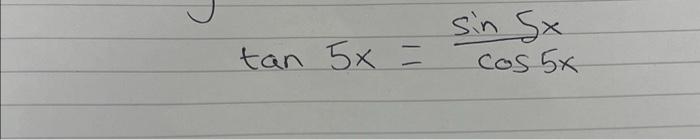 tan 5x = sin 5x / cos 5x